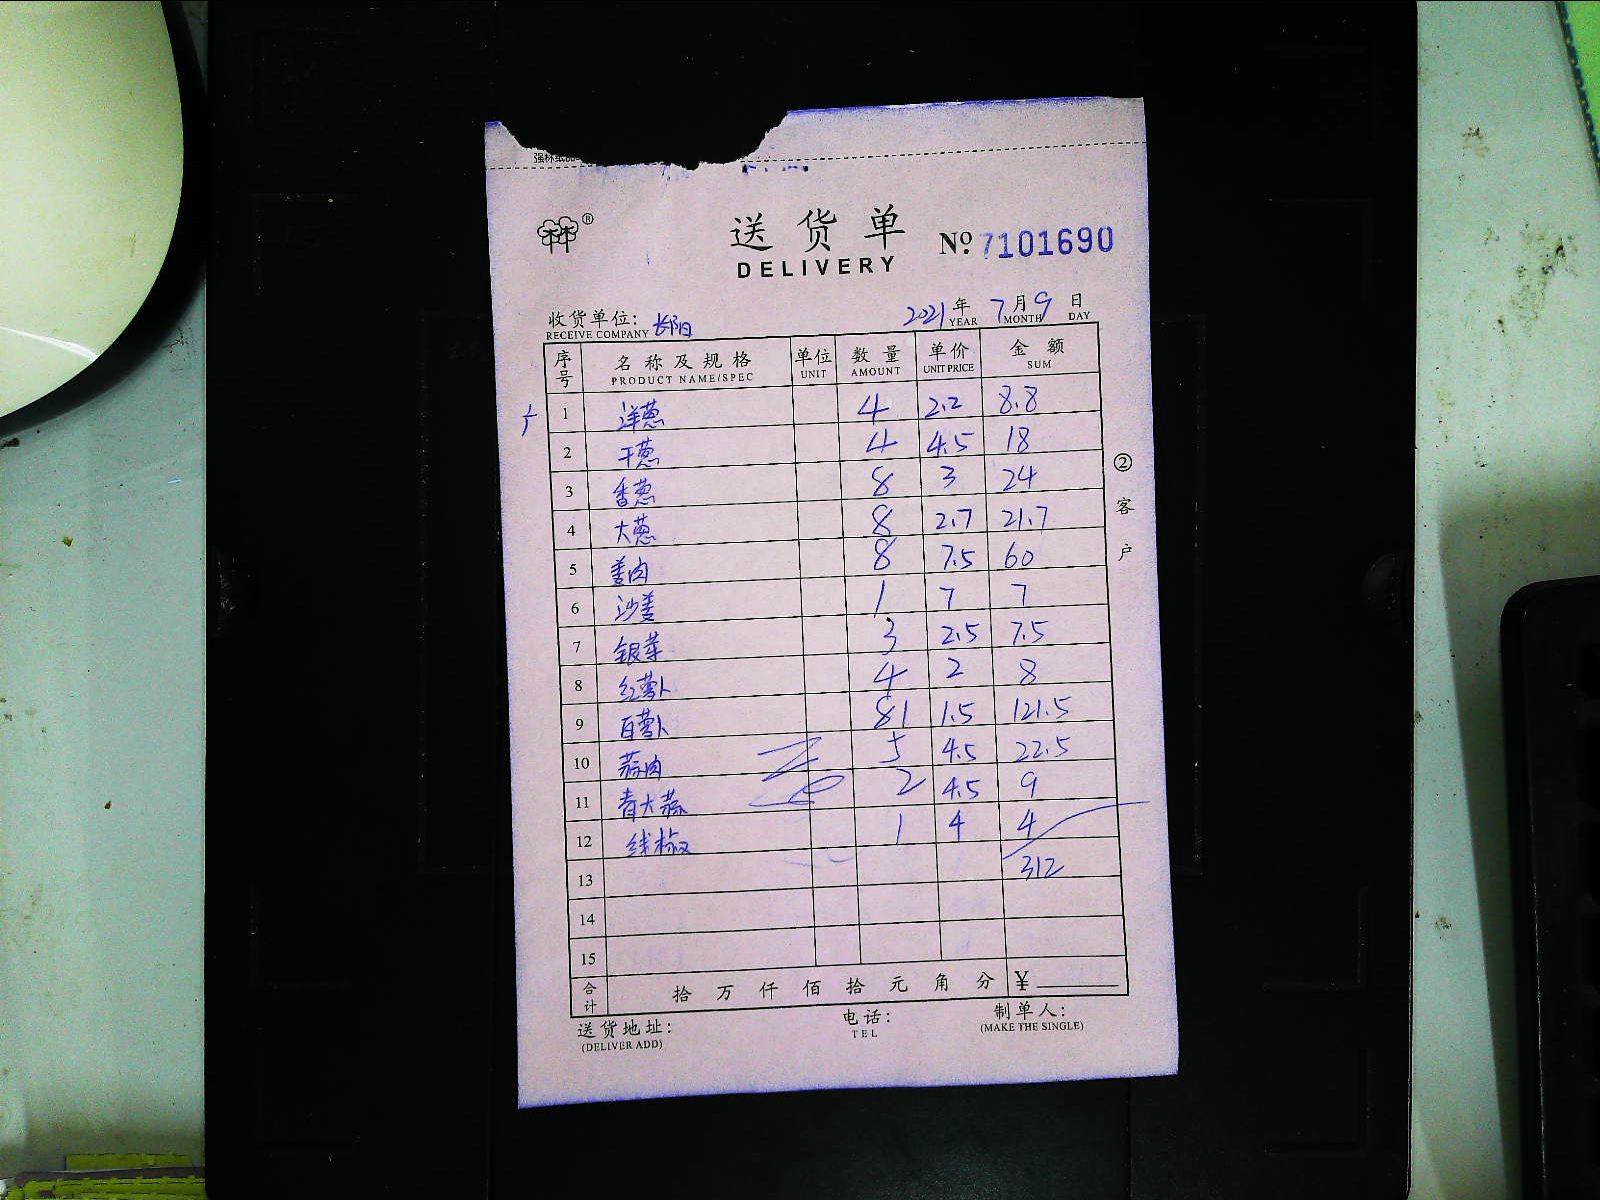 送货单
DELIVERY
№ 7101690
收货单位: 2021年 7月9日
RECEIVE COMPANY YEAR MONTH DAY
序号 名称及规格 单位 数量 单价 金额
PRODUCT NAME/SPEC UNIT AMOUNT UNIT PRICE SUM
1 洋葱 4 2.2 8.8
2 干葱 4 4.5 18
3 香葱 8 3 24
4 大葱 8 2.7 21.7
5 姜肉 8 7.5 60
6 沙姜 1 7 7
7 银芽 3 2.5 7.5
8 红萝卜 4 2 8
9 白萝卜 81 1.5 121.5
10 蒜肉 5 4.5 22.5
11 青大蒜 2 4.5 9
12 线椒 1 4 4
13 312
14
15
合计 拾 万 仟 佰 拾 元 角 分 ¥
送货地址: 电话: 制单人:
(DELIVER ADD) TEL (MAKE THE SINGLE)
②客户